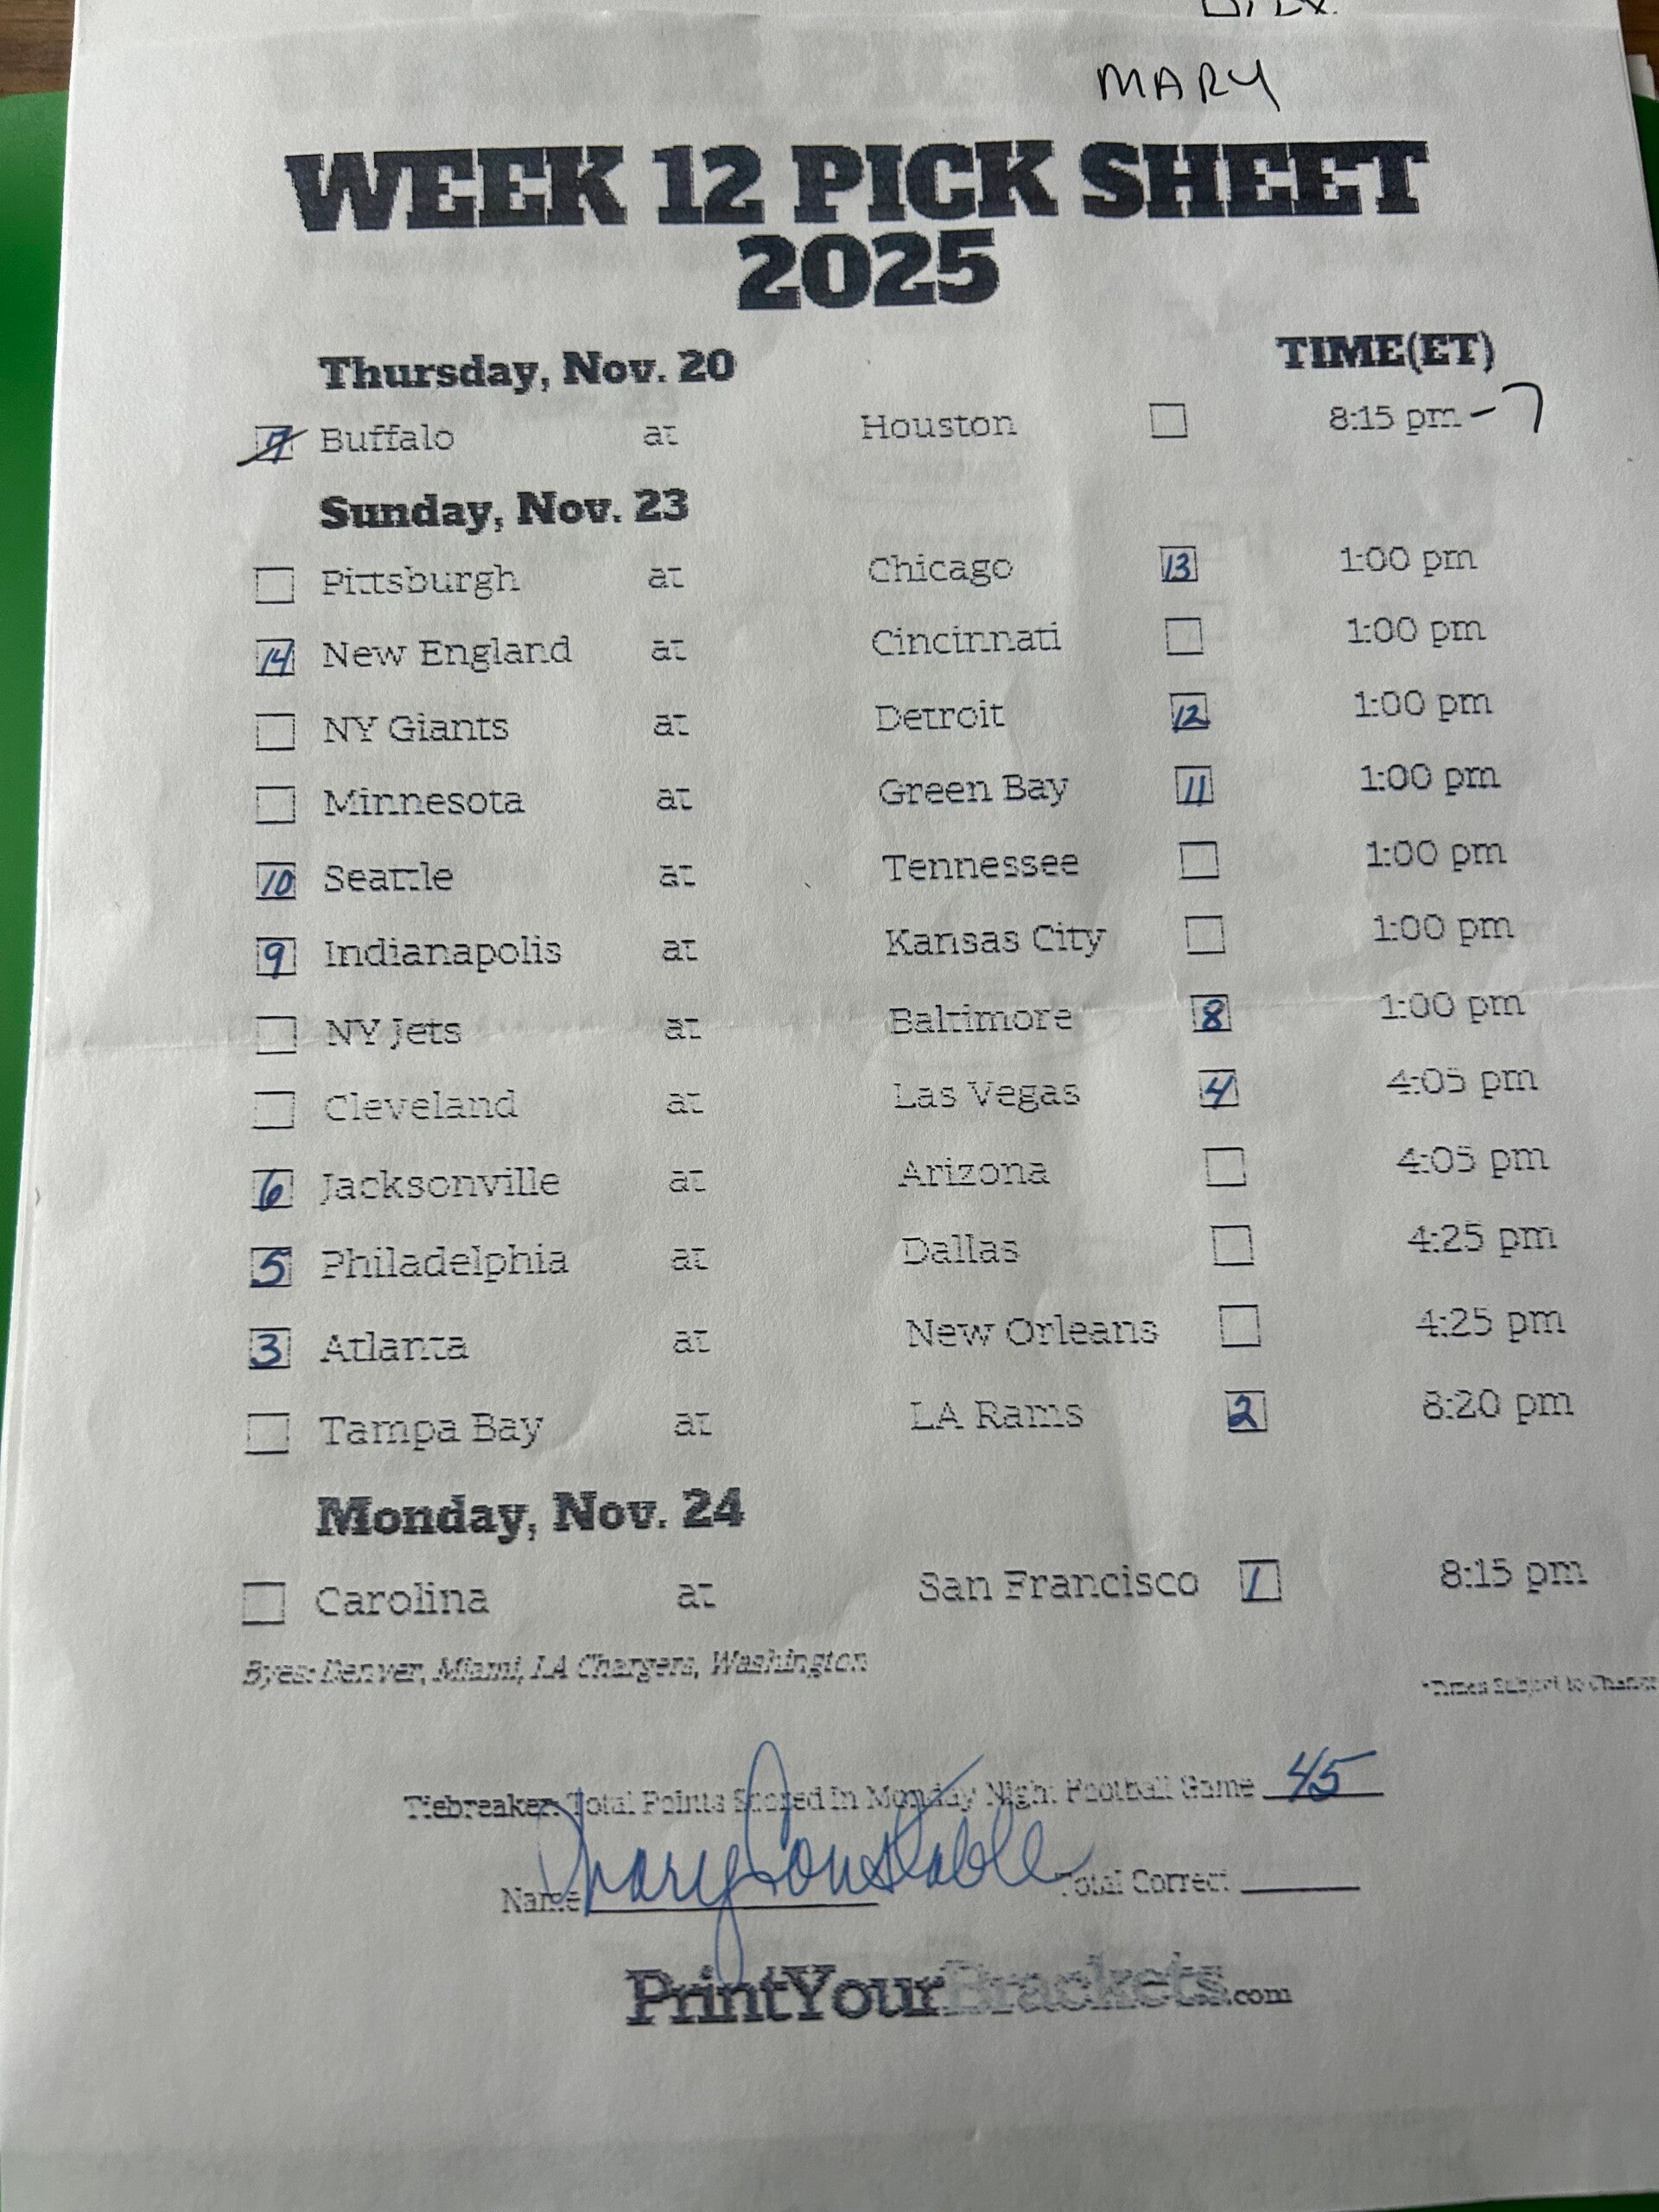 MARY
WEEK 12 PICK SHEET
2025
Thursday, Nov. 20 TIME(ET)
7 Buffalo at Houston 8:15 pm -7
Sunday, Nov. 23
Pittsburgh at Chicago 13 1:00 pm
14 New England at Cincinnati 1:00 pm
NY Giants at Detroit 12 1:00 pm
Minnesota at Green Bay 11 1:00 pm
10 Seattle at Tennessee 1:00 pm
9 Indianapolis at Kansas City 1:00 pm
NY Jets at Baltimore 8 1:00 pm
Cleveland at Las Vegas 4 4:05 pm
6 Jacksonville at Arizona 4:05 pm
5 Philadelphia at Dallas 4:25 pm
3 Atlanta at New Orleans 4:25 pm
Tampa Bay at LA Rams 2 8:20 pm
Monday, Nov. 24
Carolina at San Francisco 1 8:15 pm
Byes: Denver, Miami, LA Chargers, Washington
*Times Subject to Change
Tiebreaker: Total Points Scored in Monday Night Football Game 45
Name Mary Constable Total Correct
PrintYourBrackets.com